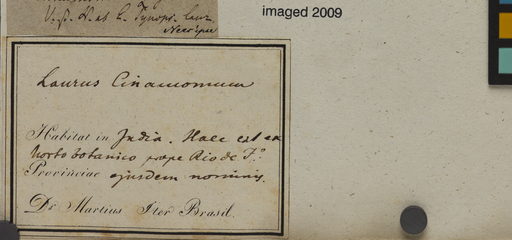 V. β. N. ab E. Synops. Laur.
imaged 2009
Laurus Cinamomum
Habitat in India. Haec est ex
horto botanico prope Rio de J.º
Provinciae ejusdem nominis.
Dr Martius Iter Brasil.